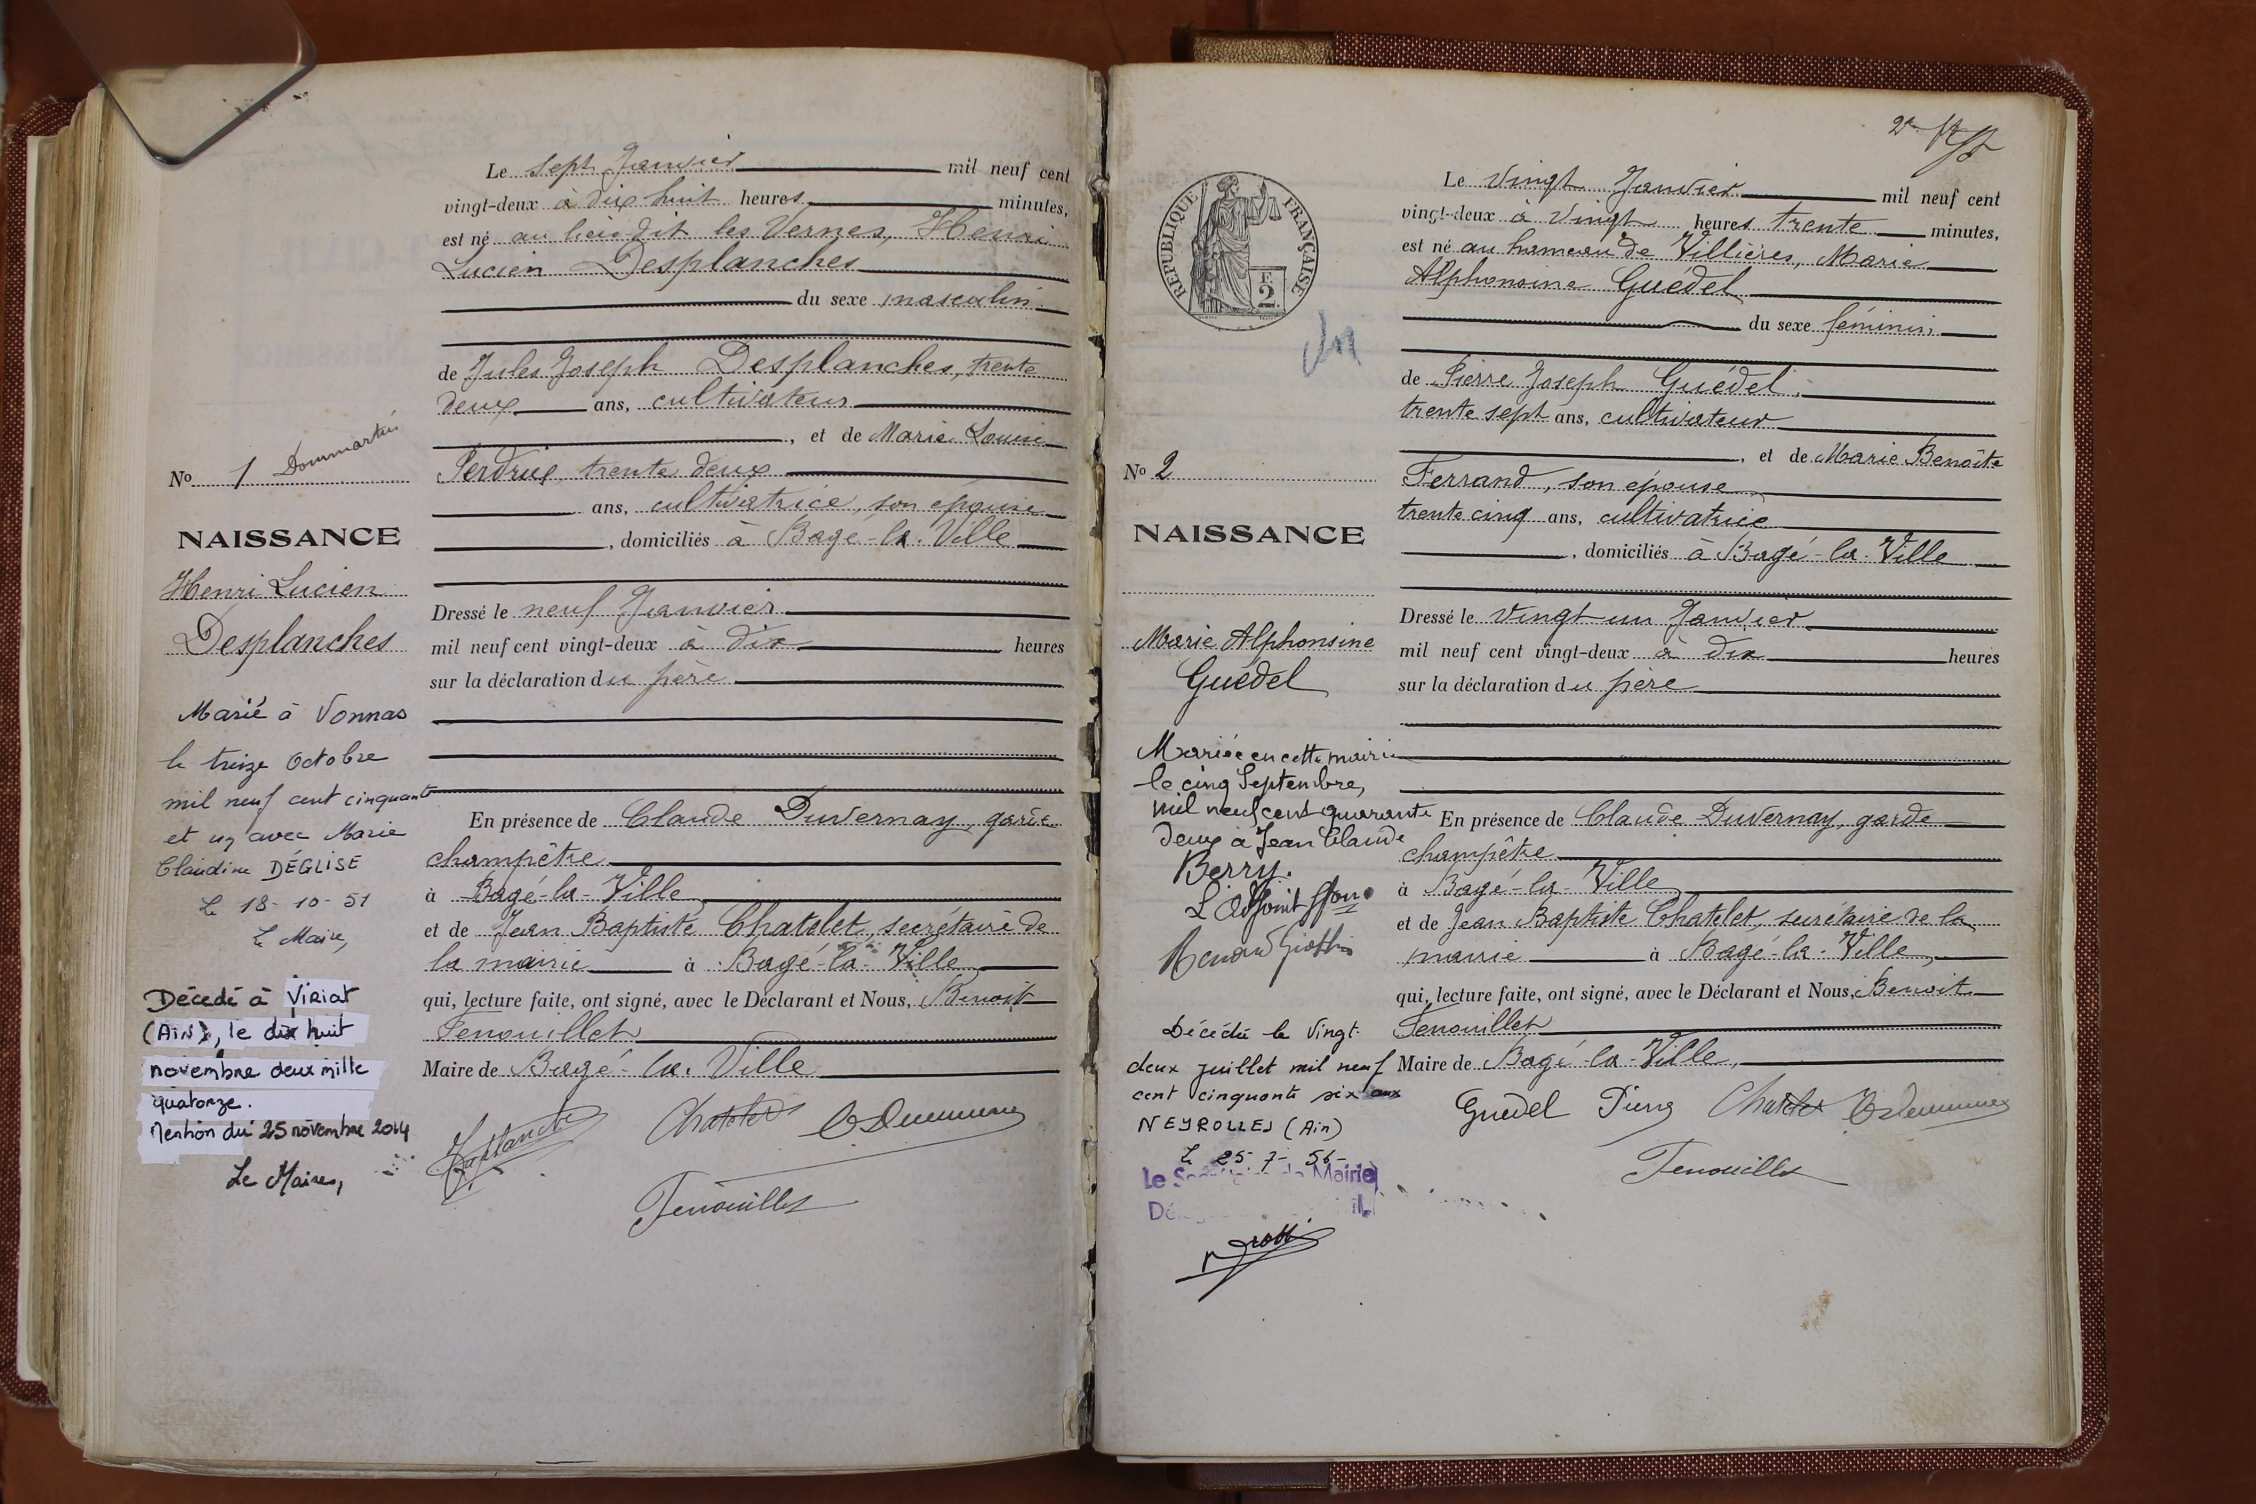 Le sept Janvier mil neuf cent
vingt-deux à dix huit heures minutes,
est né au lieu dit les Vernes, Henri
Lucien Desplanches
du sexe masculin
de Jules Joseph Desplanches, trente
deux ans, cultivateur
, et de Marie Louise
Perdrix, trente deux
ans, cultivatrice, son épouse
, domiciliés à Bagé-la-Ville
Dressé le neuf Janvier
mil neuf cent vingt-deux à dix heures
sur la déclaration du père
En présence de Claude Duvernay, garde
champêtre
à Bagé-la-Ville
et de Jean Baptiste Chatelet, secrétaire de
la mairie à Bagé-la-Ville
qui, lecture faite, ont signé, avec le Déclarant et Nous, Benoit
Fenouillet
Maire de Bagé-la-Ville
Desplanches Chatelet
Fenouillet
No 1 Dommartin
NAISSANCE
Henri Lucien
Desplanches
Marié à Vonnas
le treize Octobre
mil neuf cent cinquante
et un avec Marie
Claudine DÉGLISE
Le 18-10-51
Le Maire,
Décédé à Viriat
(Ain), le dix huit
novembre deux mille
quatorze.
Mention du 25 novembre 2014
Le Maire,
2e
RÉPUBLIQUE FRANÇAISE
F.
2
Le vingt Janvier mil neuf cent
vingt-deux à vingt heures trente minutes,
est né au hameau de Villières, Marie
Alphonsine Guédel
du sexe féminin
de Pierre Joseph Guédel,
trente sept ans, cultivateur
, et de Marie Benoîte
Ferrand, son épouse
trente cinq ans, cultivatrice
, domiciliés à Bagé-la-Ville
Dressé le vingt un Janvier
mil neuf cent vingt-deux à dix heures
sur la déclaration du père
En présence de Claude Duvernay, garde
champêtre
à Bagé-la-Ville
et de Jean Baptiste Chatelet, secrétaire de la
mairie à Bagé-la-Ville,
qui, lecture faite, ont signé, avec le Déclarant et Nous, Benoit
Fenouillet
Maire de Bagé-la-Ville,
Guédel Pierre Chatelet
Fenouillet
No 2
NAISSANCE
Marie Alphonsine
Guédel
Mariée en cette mairie
le cinq Septembre,
mil neuf cent quarante
deux à Jean Claude
Berry.
L'adjoint
Décédée le vingt
deux juillet mil neuf
cent cinquante six aux
NEYROLLES (Ain)
Le 25-7-56-
Le Secrétaire de Mairie